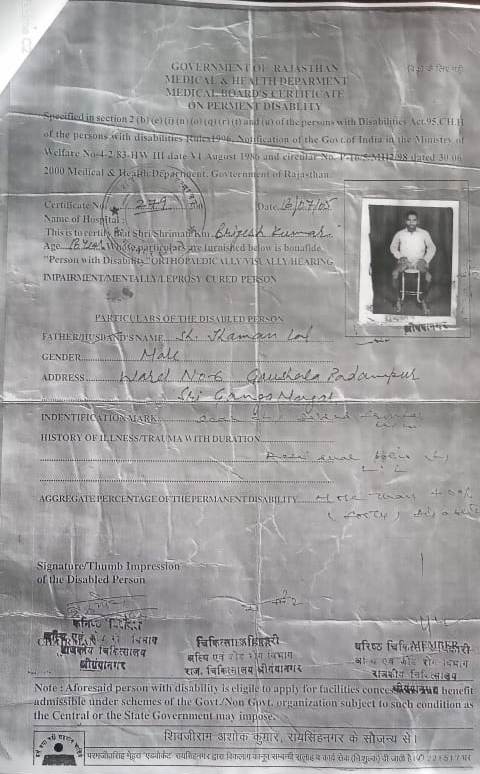 GOVERNMENT OF RAJASTHAN
MEDICAL & HEALTH DEPARMENT
MEDICAL BOARD'S CERTIFICATE
ON PERMENT DISABILITY
Specified in section 2 (b) (e) (i) (n) (o) (q) (r) (t) and (u) of the persons with Disabilities Act.95.CH.H
of the persons with disabilities Rules1996. Notification of the Govt.of India in the Ministry of
Welfare No-4-2 83-HW III date VI August 1986 and circular No. dated 30.06
2000 Medical & Health Department. Govternment of Rajasthan.
Certificate No. 279 Date 16/07/05
Name of Hospital :
This is to certify that Shri/Shrimati/Km. Brijesh Kumar
Age Whose particulars are furnished below is bonafide.
"Person with Disability" ORTHOPAEDICALLY/VISUALLY/HEARING
IMPAIRMENT/MENTALLY/LEPROSY CURED PERSON
श्रीगंगानगर
PARTICULARS OF THE DISABLED PERSON
FATHER/HUSBAND'S NAME Sh. Thaman Lal
GENDER Male
ADDRESS Ward No-6 Gaushala Padampur
Sri Ganga Nagar
INDENTIFICATION MARK
HISTORY OF ILLNESS/TRAUMA WITH DURATION
AGGREGATE PERCENTAGE OF THE PERMANENT DISABILITY More than 40%
Signature/Thumb Impression
of the Disabled Person
CHAIRMAN
कनिष्ठ
अस्थि एवं जोड़ रोग विभाग
राजकीय चिकित्सालय
श्रीगंगानगर
चिकित्साअधिकारी
अस्थि एवं जोड़ रोग विभाग
राज. चिकित्सालय श्रीगंगानगर
MEMBER
वरिष्ठ चिकित्साअधिकारी
अस्थि एवं जोड़ रोग विभाग
राजकीय चिकित्सालय
श्रीगंगानगर
Note : Aforesaid person with disability is eligile to apply for facilities benefit
admissible under schemes of the Govt./Non Govt. organization subject to such condition as
the Central or the State Government may impose.
शिवजीराम अशोक कुमार, रायसिंहनगर के सौजन्य से।